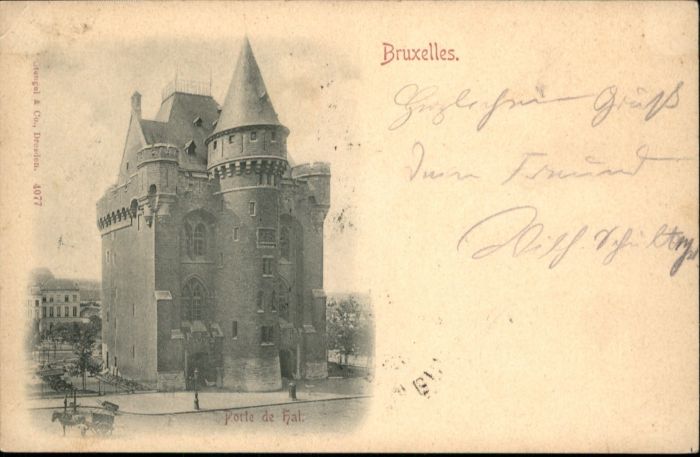 Bruxelles.
Herzlichen Gruß
Dein Freund
Wilh. Schultze
Stengel & Co., Dresden. 4077
Porte de Hal.